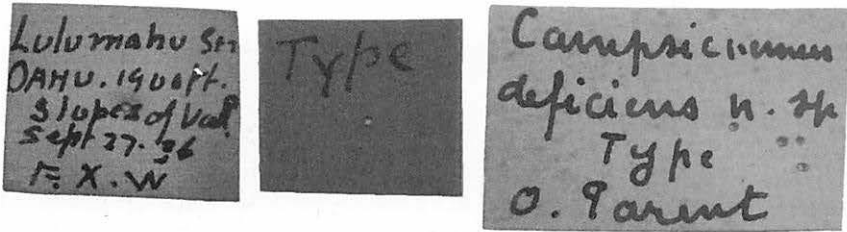 Lulumahu Str
OAHU. 1900ft.
Slopes of Vall
Sept 27. 36
F. X. W
Type
Campsicnemus
deficiens n. sp
Type
O. Parent